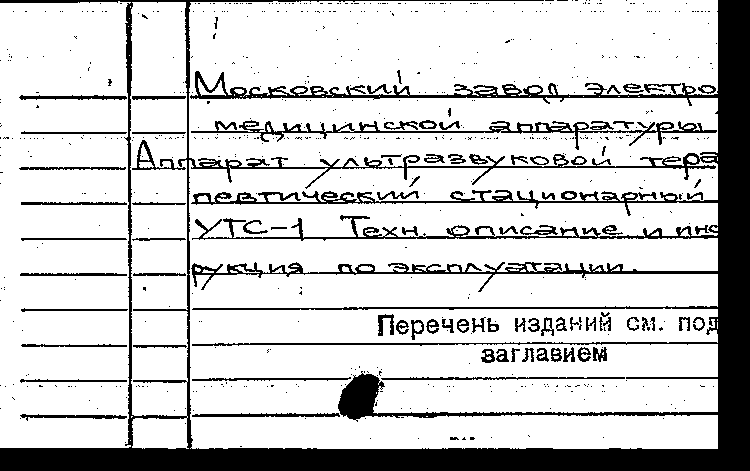 Московский завод электро
медицинской аппаратуры
Аппарат ультразвуковой тера
певтический стационарный
УТС-1 Техн. описание и инс
рукция по эксплуатации.
Перечень изданий см. под
заглавием